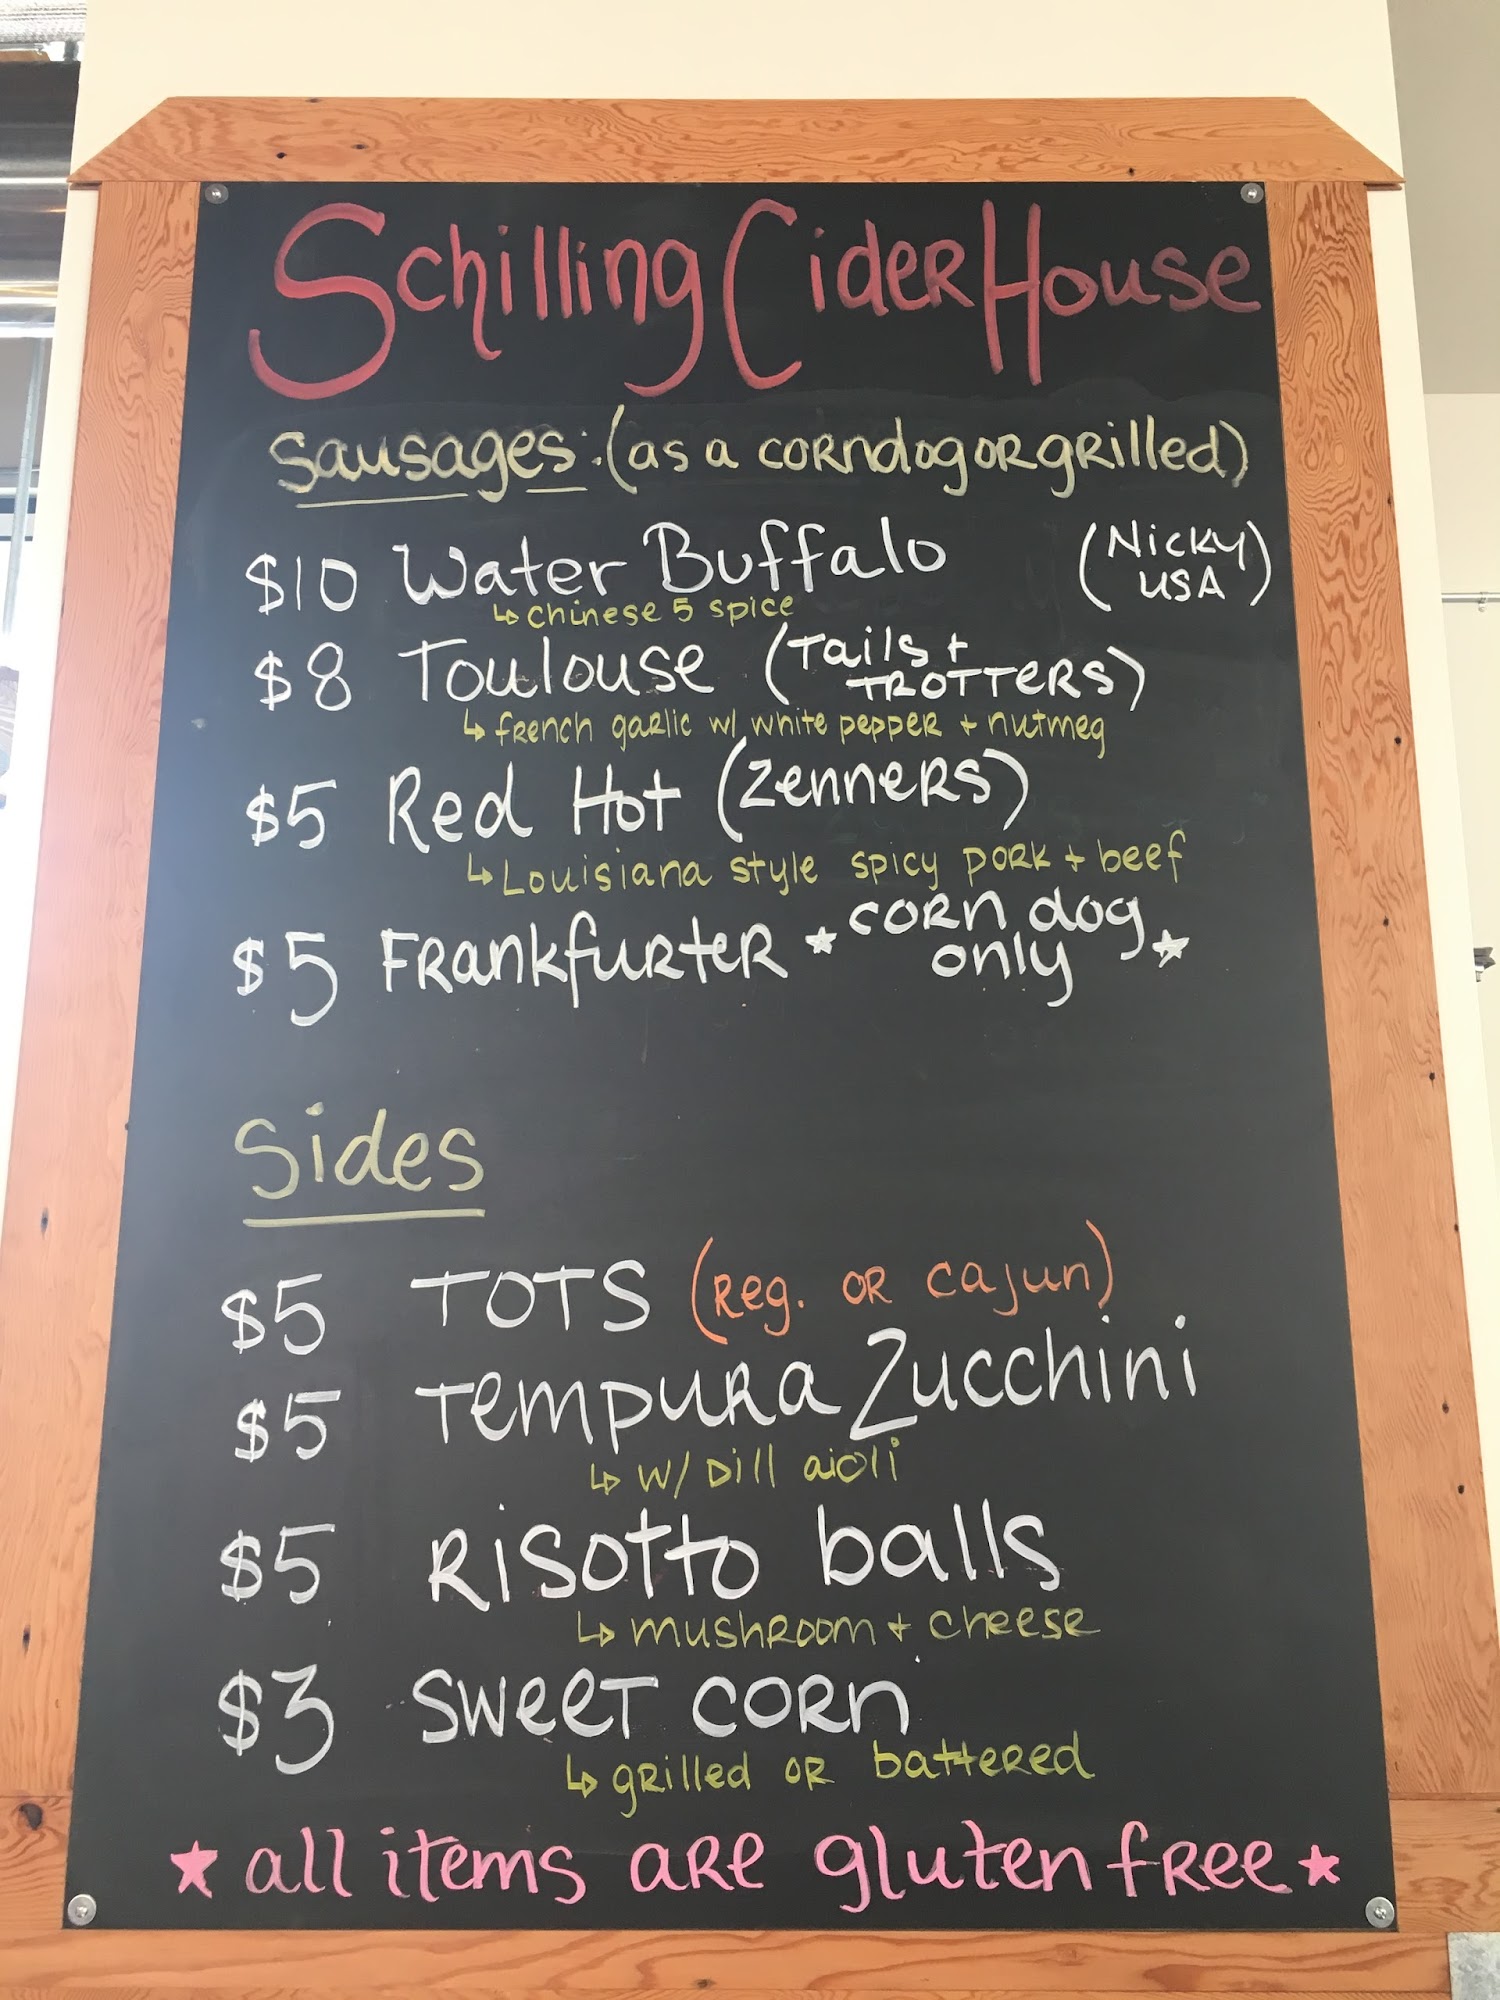 Schilling Cider House
Sausages: (as a corndog or grilled)
$10 Water Buffalo (Nicky USA)
↳ Chinese 5 spice
$8 Toulouse (Tails + Trotters)
↳ french garlic w/ white pepper + nutmeg
$5 Red Hot (Zenners)
↳ Louisiana style spicy pork + beef
$5 Frankfurter ★ corn dog only ★
Sides
$5 TOTS (reg. or cajun)
$5 Tempura Zucchini
↳ w/ Dill aioli
$5 Risotto balls
↳ mushroom + cheese
$3 Sweet corn
↳ grilled or battered
★ all items are gluten free ★